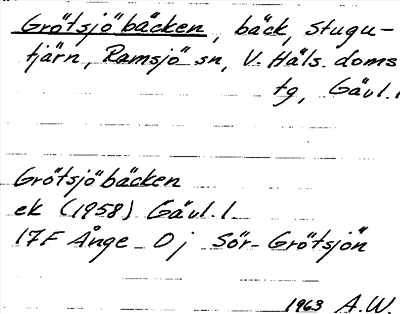 Grötsjöbäcken, bäck, Stugu-
tjärn, Ramsjö sn, V. Häls. doms
tg, Gävl. l
Grötsjöbäcken
ek (1958) Gävl. l
17F Ånge 0j Sör-Grötsjön
1963 A.W.